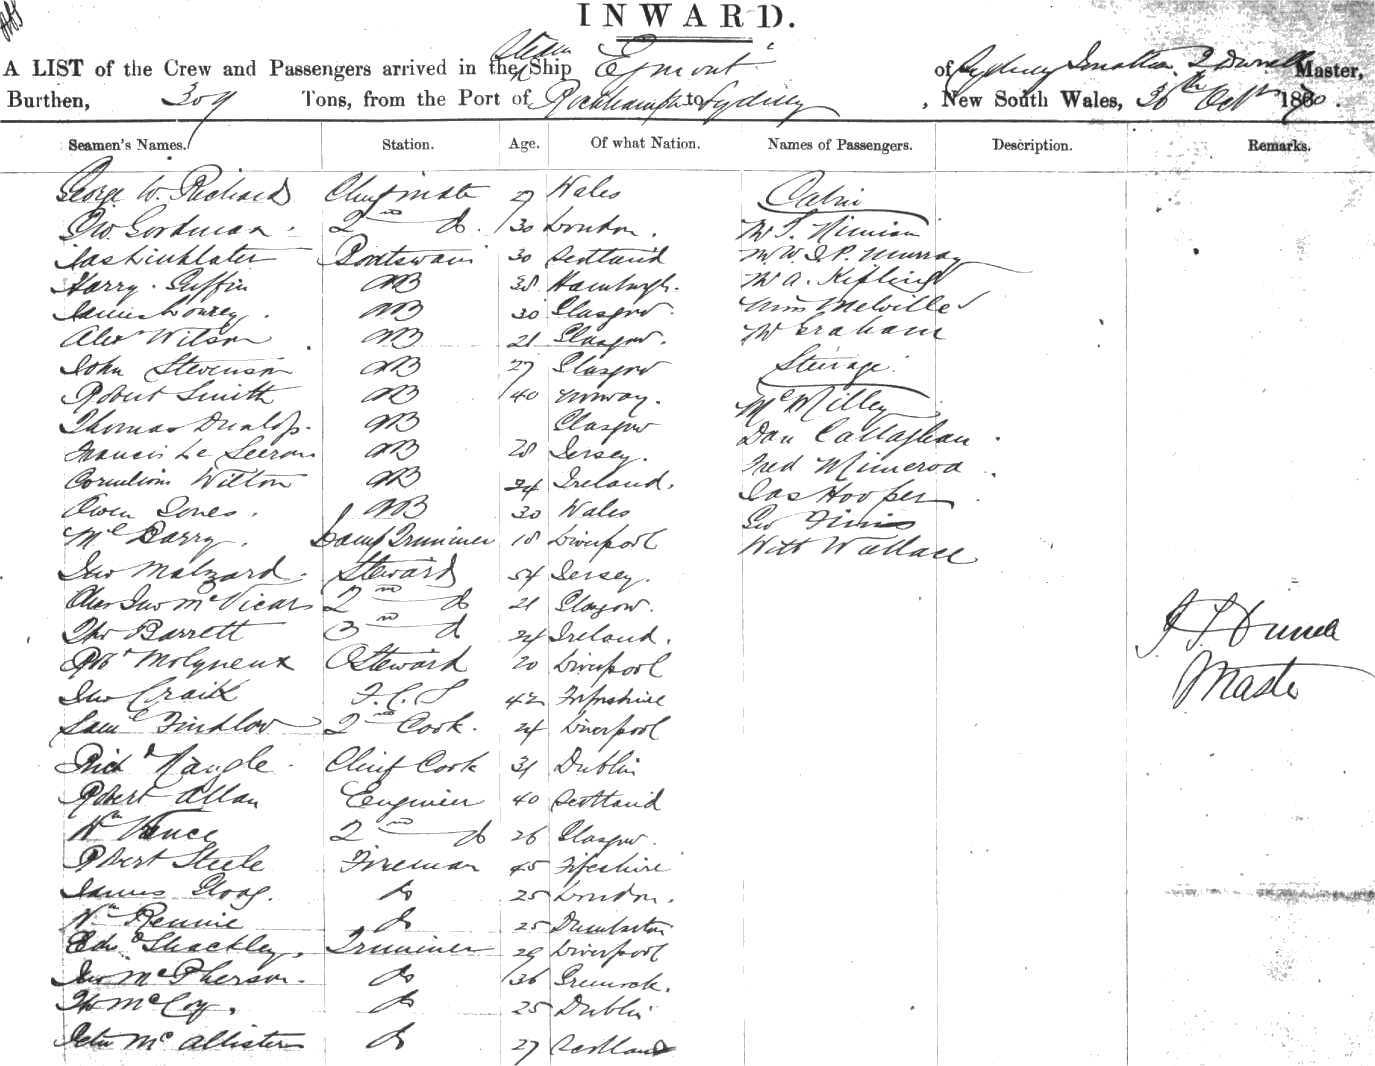 INWARD.
A LIST of the Crew and Passengers arrived in the Steam Ship Egmont of Sydney Master,
Burthen, 309 Tons, from the Port of Rockhampton to Sydney, New South Wales, 30th Octr 1870.
Seamen's Names. Station. Age. Of what Nation. Names of Passengers. Description. Remarks.
George W. Richards Chief mate 27 Wales Cabin
Jno Gordman 2nd do 30 London. Mr T. Ninian
Jas Linklater Boatswain 30 Scotland Mr W J P. Murray
Harry Griffin AB 38 Hamburgh. Mr A. Kipling
James Lowrey AB 30 Glasgow. Miss Melville
Alexr Wilson AB 21 Glasgow. Mr Graham
John Stevenson AB 27 Glasgow Steerage
Robert Smith AB 40 Norway. Mc Willey
Thomas Dunlop. AB Glasgow Dan Callaghan
Francis Le AB 28 Jersey. Fred Nimerod
Cornelious Wilton AB 24 Ireland. Jas Hooper
Owen Jones. AB 30 Wales Geo Finnis
Ml Barry. Lamp Trimmer 18 Liverpool Will Wallace
Jno Malzard. Steward 54 Jersey.
Jno McVicars 2nd do 21 Glasgow.
Thos Barrett 3rd do 24 Ireland.
Robt Molyneux Steward 20 Liverpool
Jno Craik F.C.S 42 Forfarshire
Saml Findlow 2nd Cook. 24 Liverpool
Richd Nangle Chief Cook 31 Dublin
Robert Allan Engineer 40 Scotland
Wm Vance 2nd do 26 Glasgow.
Robert Steele Fireman 45 Fifeshire
James Gloag. do 25 London.
Wm Rennie do 25 Dumbarton
Edwd Shackley. Trimmer 29 Liverpool
Jno McPherson. do 36 Greenock.
Thos McCoy. do 25 Dublin
Peter McAllister do 27 Scotland
Master